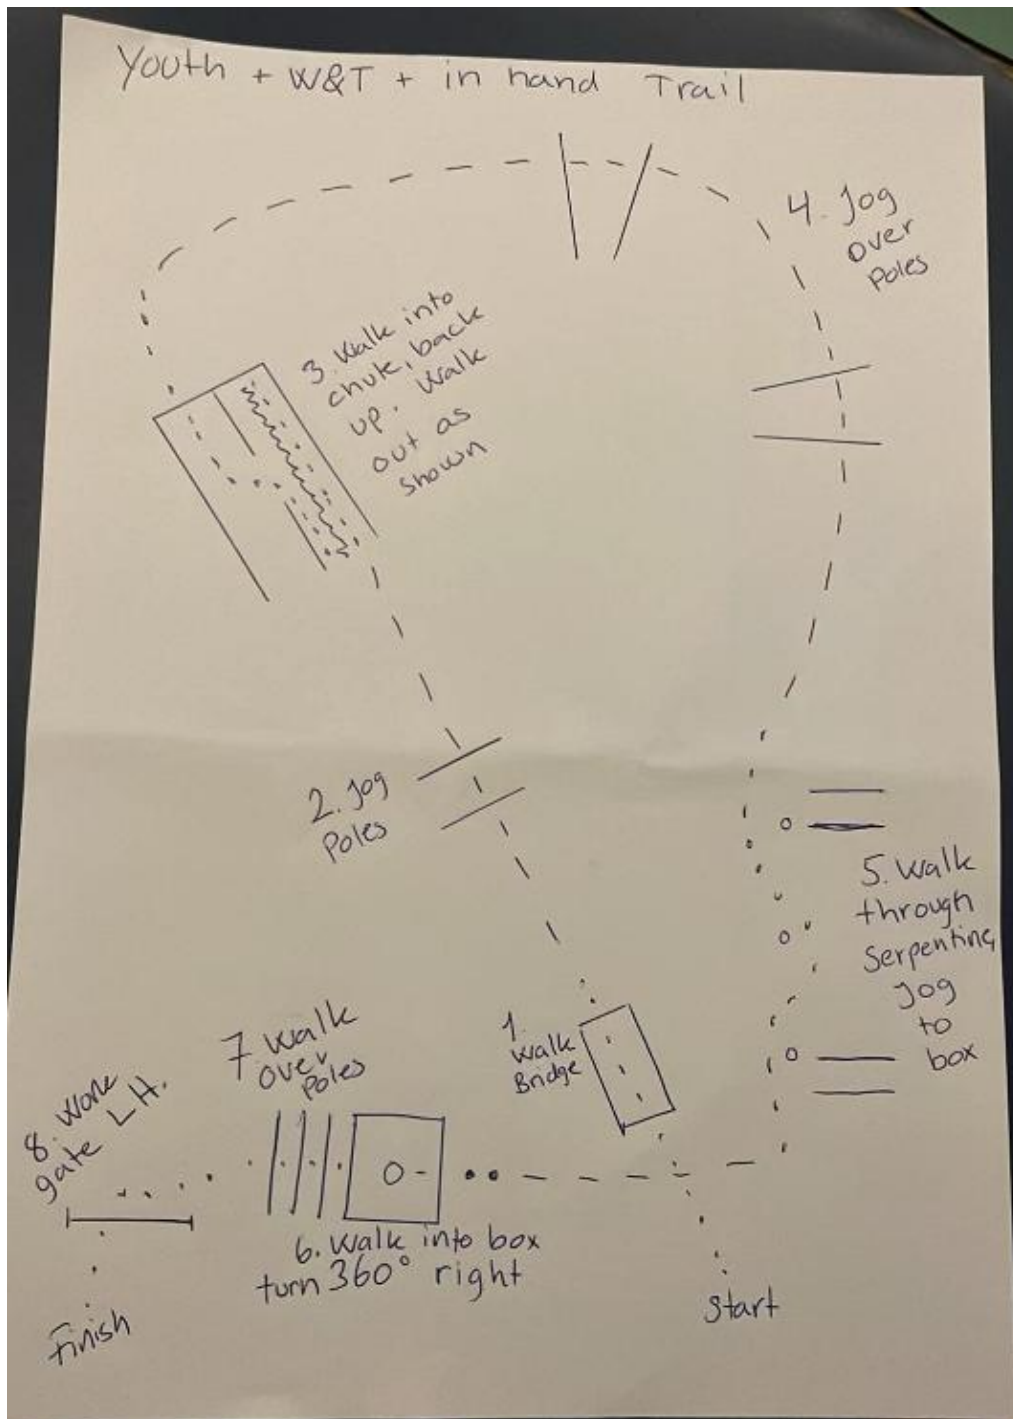 Youth + W&T + in hand Trail
4. Jog
over
Poles
3. Walk into
chute, back
up. Walk
out as
shown
2. Jog
Poles
5. Walk
through
Serpentine,
Jog
to
box
1.
Walk
Bridge
7. Walk
over
Poles
8. Work
gate LH.
6. Walk into box
turn 360° right
Start
Finish